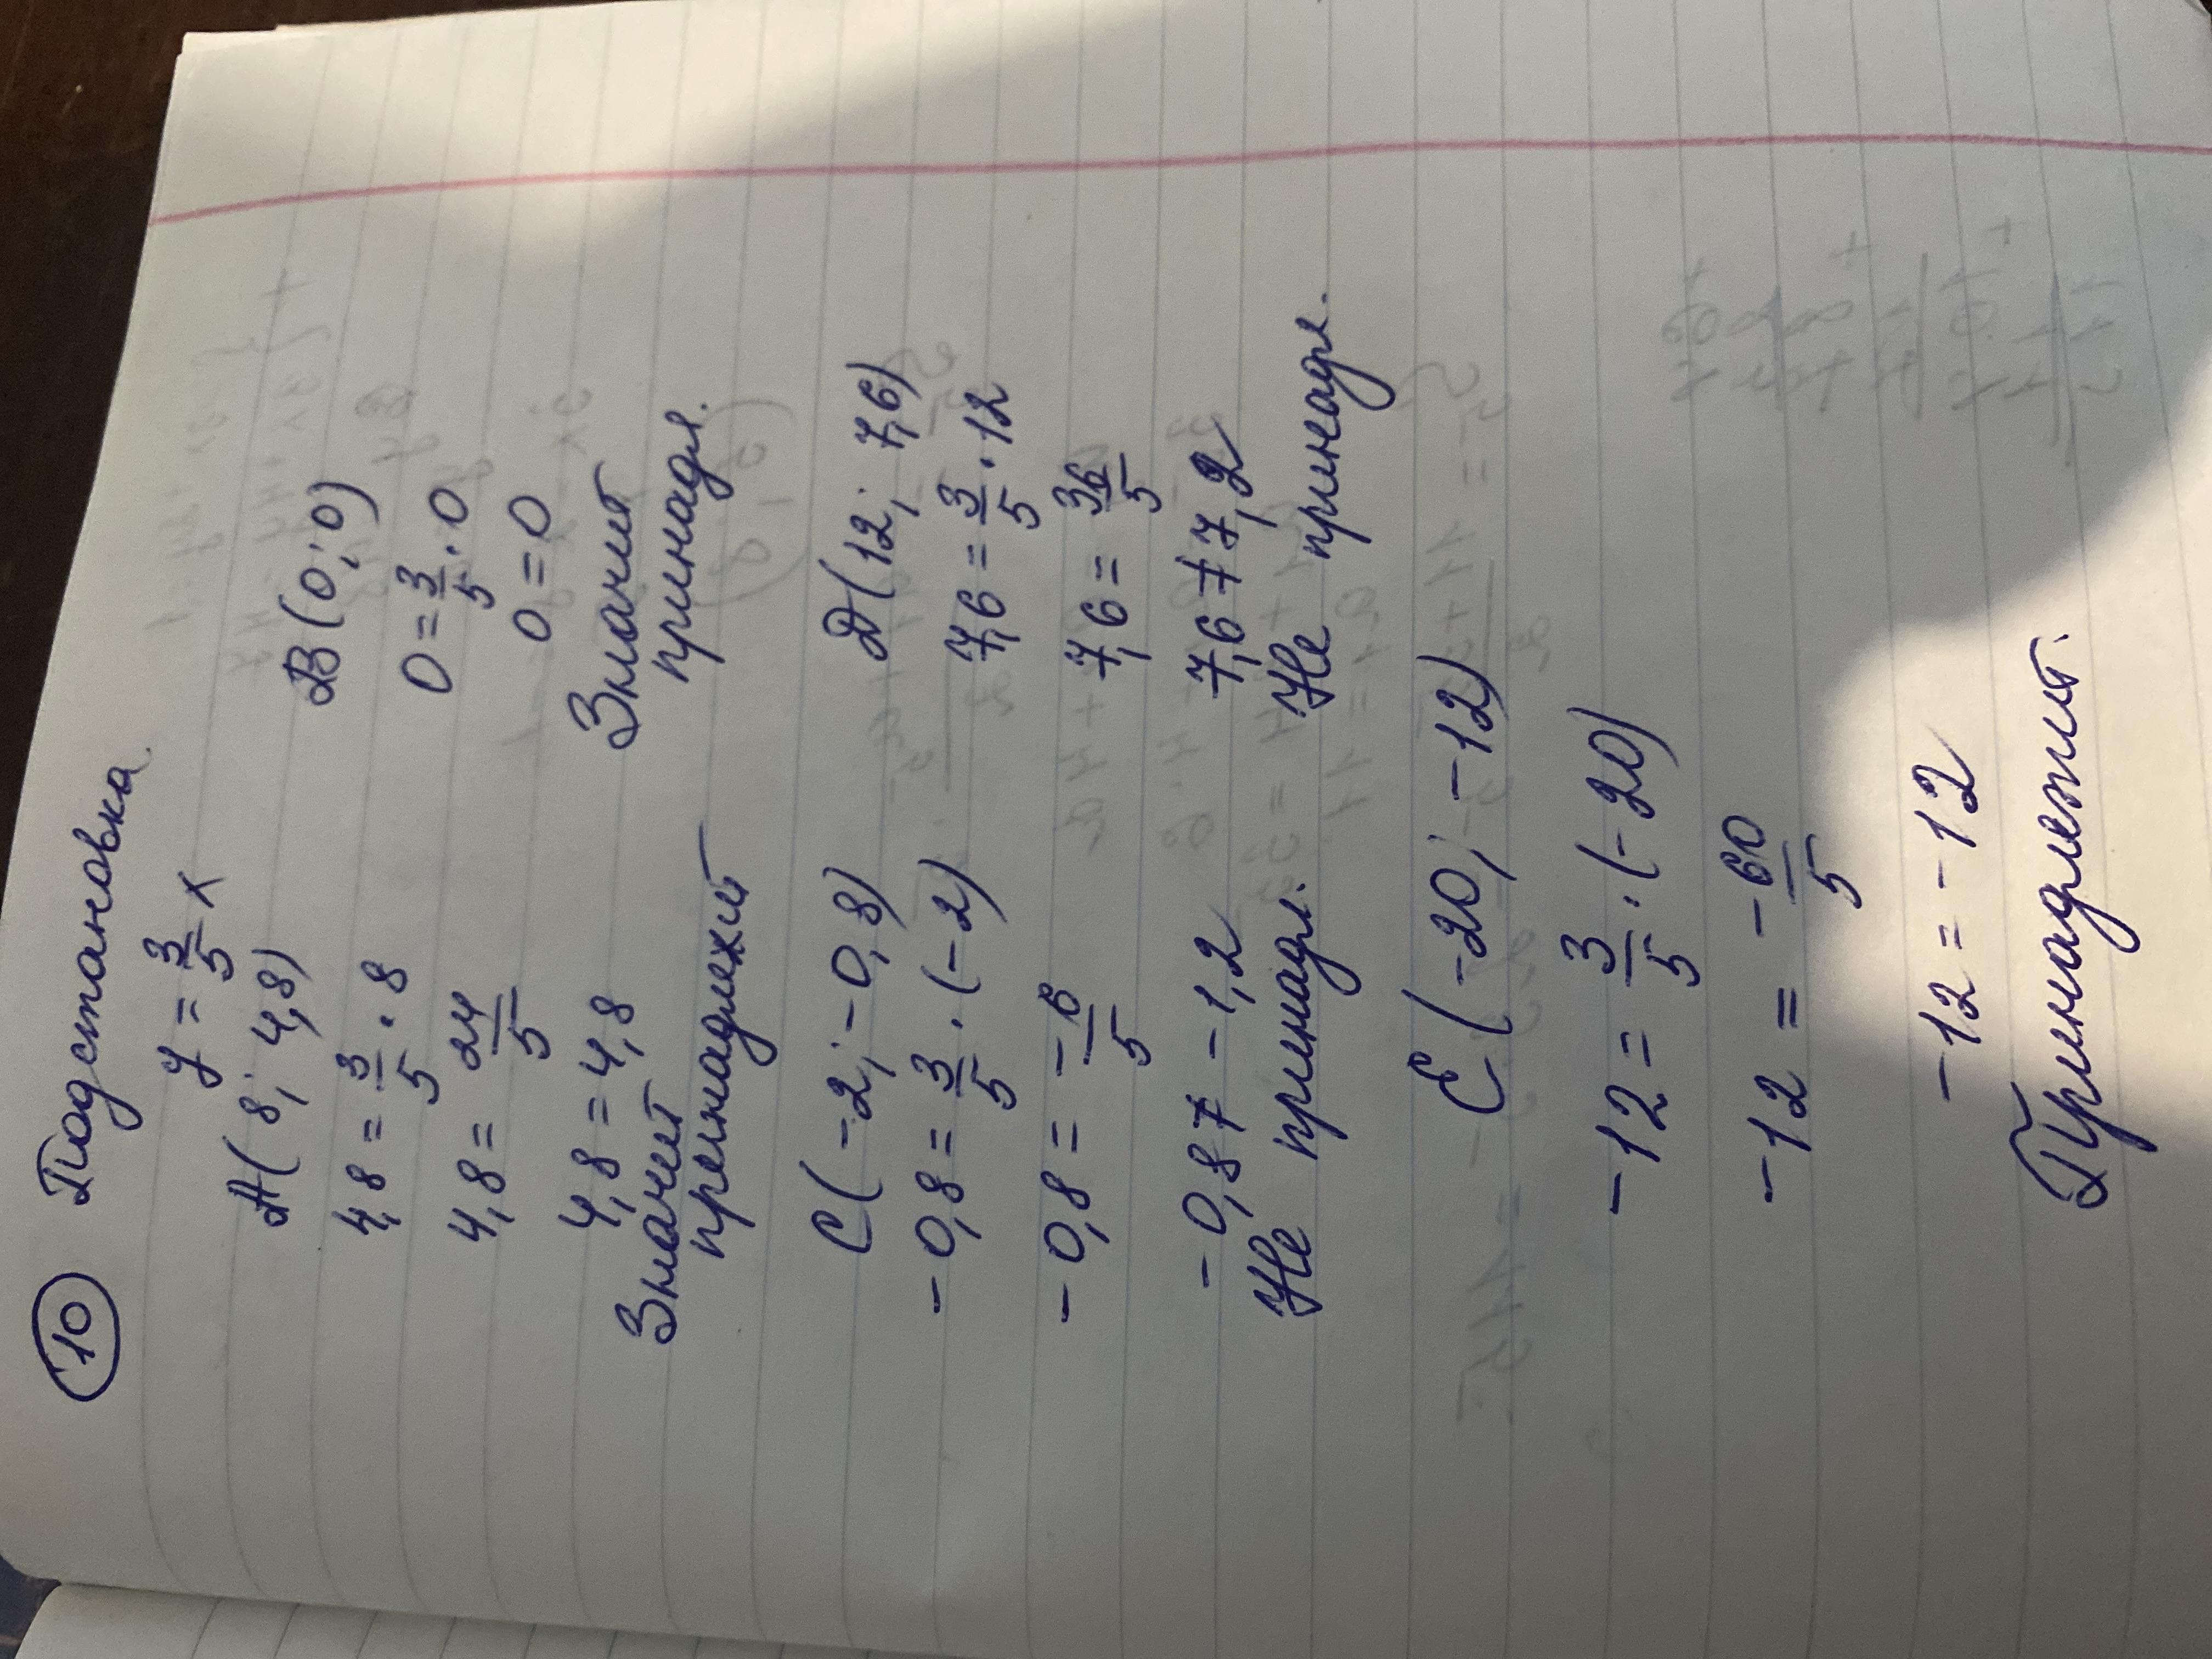 10 Подстановка
y = 3/5 x
A(8; 4,8)
4,8 = 3/5 · 8
4,8 = 24/5
4,8 = 4,8
Значит
принадлежит
B(0; 0)
0 = 3/5 · 0
0 = 0
Значит
принадл.
C(-2; -0,8)
-0,8 = 3/5 · (-2)
-0,8 = -6/5
-0,8 ≠ -1,2
Не принадл.
D(12; 7,6)
7,6 = 3/5 · 12
7,6 = 36/5
7,6 ≠ 7,2
Не принадл.
E(-20; -12)
-12 = 3/5 · (-20)
-12 = -60/5
-12 = -12
Принадлежит.